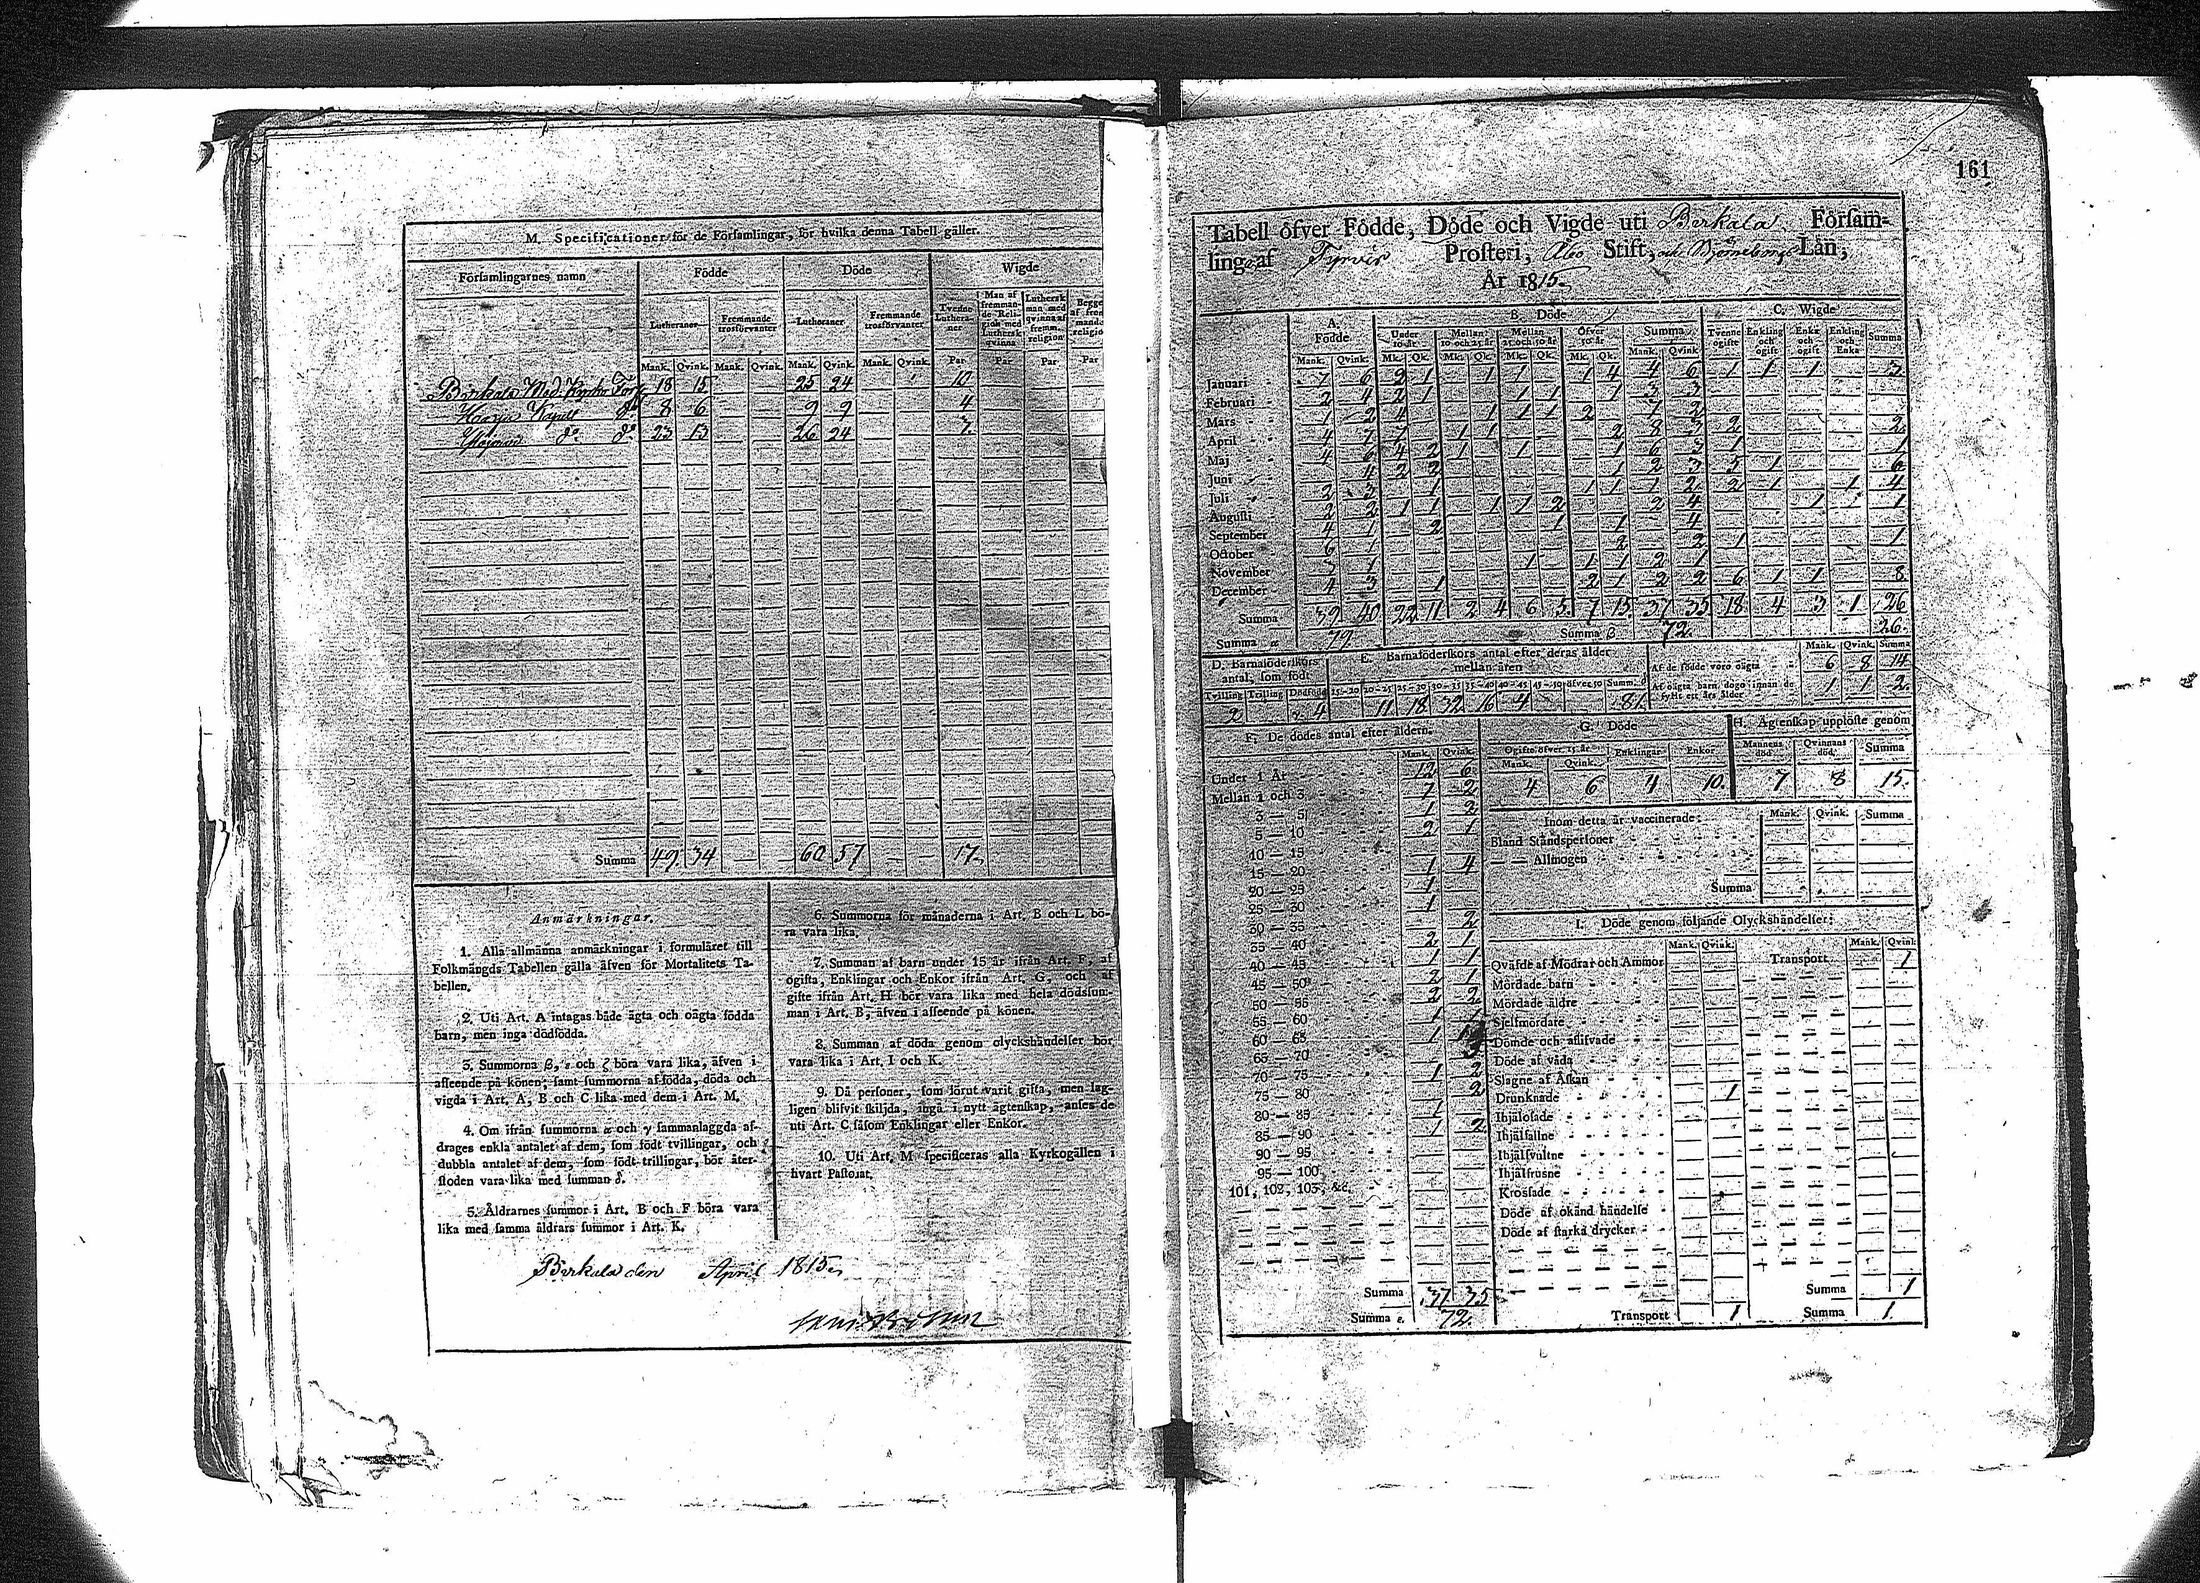 M. Specificationer för de Församlingar, för hvilka denna Tabell gäller.
Församlingarnes namn Födde Döde Wigde
Lutheraner Fremmande trosförvanter Lutheraner Fremmande trosförvanter Tvenne Lutheraner Man af fremmande Religion med Luthersk qvinna Luthersk man med qvinna af fremm. religion
Mank. Qvink. Mank. Qvink. Mank. Qvink. Mank. Qvink. Par Par Par Par
Birkala Mod. Kyrko 18 15 25 24 10
Kapell 8 6 9 9 4
do. do. 23 13 26 24 7
Summa 49. 34 60 57 17.
Anmärkningar.
1. Alla allmänna anmärkningar i formuläret till
Folkmängds Tabellen gälla äfven för Mortalitets Ta-
bellen.
2. Uti Art. A intagas både ägta och oägta födda
barn, men inga dödfödda.
3. Summorna β, ε och ζ böra vara lika, äfven i
afseende på könen; samt summorna af födda, döda och
vigda i Art. A, B och C lika med dem i Art. M.
4. Om ifrån summorna α och γ sammanlaggda af-
drages enkla antalet af dem, som födt tvillingar, och
dubbla antalet af dem, som födt trillingar, bör åter-
stoden vara lika med summan δ.
5. Åldrarnes summor i Art. B och F böra vara
lika med samma åldrars summor i Art. K.
6. Summorna för månaderna i Art. B och L bö-
ra vara lika.
7. Summan af barn under 15 år ifrån Art. F, af
ogifta, Enklingar och Enkor ifrån Art. G, och af
gifte ifrån Art. H bör vara lika med hela dödssum-
man i Art. B, äfven i afseende på könen.
8. Summan af döda genom olyckshändelser bör
vara lika i Art. I och K.
9. Då personer, som förut varit gifta, men lag-
ligen blifvit skiljda, ingå i nytt ägtenskap, anses de
uti Art. C såsom Enklingar eller Enkor.
10. Uti Art. M specificeras alla Kyrkogällen i
hvart Pastorat.
Birkala den April 1815
161
Tabell öfver Födde, Döde och Vigde uti Birkala Försam-
ling af Tyrvis Prosteri, Åbo Stift, och Björneborgs Län,
År 1815.
A. Födde B. Döde C. Wigde
Under 10 år Mellan 10 och 25 år Mellan 25 och 50 år Öfver 50 år Summa Tvenne ogifte Enkling och ogift Enka och ogift Enkling och Enka Summa
Mank. Qvink. Mk. Qk. Mk. Qk. Mk. Qk. Mk. Qk. Mank. Qvink.
Januari 7 6 2 1 1 1 1 4 4 6 1 1 1 3
Februari 2 4 2 1 1 1 1 3 3
Mars 1 2 4 1 1 1 2 7 2
April 4 7 7 1 1 2 8 3 2 2
Maj 4 6 4 2 1 1 1 6 3 1 1
Juni 4 2 2 1 2 3 5 1 6
Juli 2 3 1 1 1 1 2 2 1 1 4
Augusti 2 2 1 1 1 1 2 2 4 1 1
September 4 1 2 1 1 4
October 6 1 2 2 1 1
November 3 1 1 1 1 2 1
December 4 3 1 2 1 2 2 6 1 1 8
Summa 39. 40 22 11 2 4 6 5 7 15 37 35 18 4 3 1 26
Summa α 79 Summa β 72. 26.
D. Barnaföderskors antal, som födt
E. Barnaföderskors antal efter deras ålder mellan åren
Tvilling Trilling Dödfödd 15-20 20-25 25-30 30-35 35-40 40-45 45-50 öfver 50 Summ. δ
2 4 11 18 32 16 4 81.
Mank. Qvink. Summa
Af de födde voro oägta 6 8 14
Af oägta barn dogo innan de fyllt ett års ålder 1 1 2.
F. De dödes antal efter åldern.
Mank. Qvink.
Under 1 År 12 6
Mellan 1 och 3 7 2
3 — 5 1 2
5 — 10 2 1
10 — 15
15 — 20 1 4
20 — 25 1
25 — 30 1
30 — 35 2
35 — 40 2 1
40 — 45 1 1
45 — 50 2 1
50 — 55 2 2
55 — 60 1 1
60 — 65 1
65 — 70 3
70 — 75 1 2
75 — 80 2
80 — 85 1
85 — 90 1 2
90 — 95
95 — 100
101, 102, 103, &c.
Summa 37 35
Summa ε. 72.
G. Döde
Ogifte öfver 15 år Enklingar Enkor
Mank. Qvink.
4 6 4 10.
H. Ägtenskap upplöste genom
Mannens död. Qvinnans död. Summa
7 8 15.
Inom detta år vaccinerade: Mank. Qvink. Summa
Bland Ståndspersoner
— — Allmogen
Summa
I. Döde genom följande Olyckshändelser:
Mank. Qvink. Mank. Qvink.
Qväfde af Mödrar och Ammor Transport 1
Mördade barn
Mördade äldre
Sjelfmördare
Dömde och aflifvade
Döde af våda
Slagne af Åskan
Drunknade 1
Ihjälosade
Ihjälfallne
Ihjälsvultne
Ihjälfrusne
Krossade
Döde af okänd händelse
Döde af starka drycker
Summa 1
Transport 1 Summa 1.